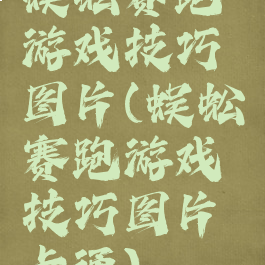 蜈蚣赛跑
游戏技巧
图片(蜈蚣
赛跑游戏
技巧图片